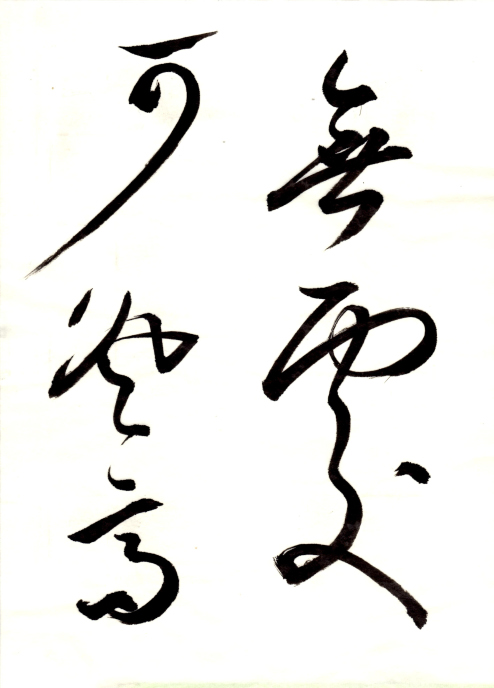 無處
可登高